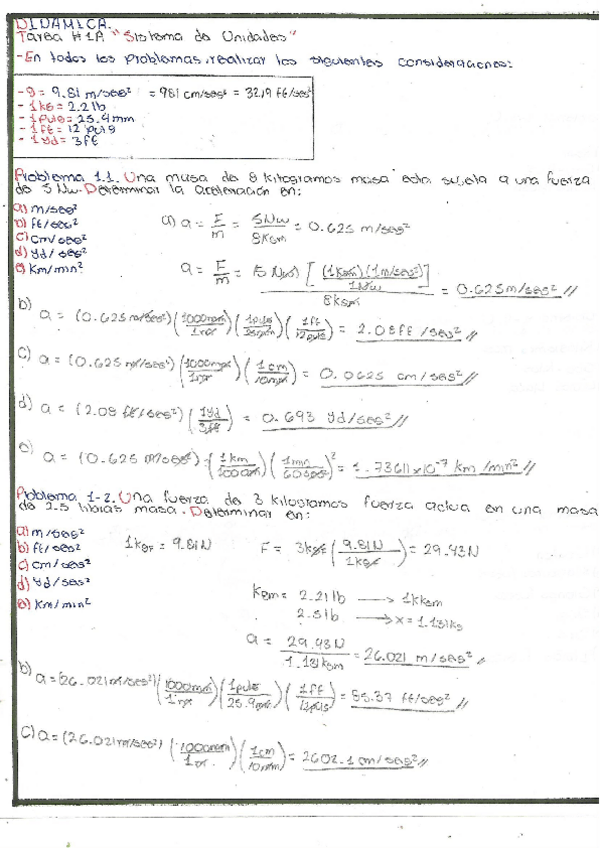 DINAMICA.
Tarea #1A "Sistema de Unidades"
-En todos los problemas, realizar las siguientes consideraciones:
- g = 9.81 m/seg² = 981 cm/seg² = 32.19 ft/seg²
- 1kg = 2.2 lb
- 1pulg = 25.4 mm
- 1ft = 12 pulg
- 1yd = 3ft
Problema 1.1. Una masa de 8 kilogramos masa esta sujeta a una fuerza
de 5 Nw. Determinar la aceleración en:
a) m/seg²
b) ft/seg²
c) cm/seg²
d) yd/seg²
e) Km/min²
a) a = F/m = 5Nw/8Kgm = 0.625 m/seg²
a = F/m = (5 Nw) [(1Kgm)(1m/seg²)/1Nw] / 8kgm = 0.625m/seg² //
b) a = (0.625 m/seg²)(1000mm/1m)(1pulg/25.4mm)(1ft/12pulg) = 2.08ft/seg² //
c) a = (0.625 m/seg²)(1000mm/1m)(1cm/10mm) = 0.0625 cm/seg² //
d) a = (2.08 ft/seg²)(1yd/3ft) = 0.693 Yd/seg² //
e) a = (0.625 m/seg²)(1km/1000m)(1min/60seg)² = 1.73611x10⁻⁷ km/min² //
Problema 1-2. Una fuerza de 3 kilogramos fuerza actua en una masa
de 2.5 libras masa. Determinar en:
a) m/seg²
b) ft/seg²
c) cm/seg²
d) Yd/seg²
e) Km/min²
1kgF = 9.81N F = 3kgF (9.81N/1kgF) = 29.43N
Kgm = 2.21lb → 1kkgm
2.5lb → x = 1.131kg
a = 29.43N/1.131kgm = 26.021 m/seg² //
b) a = (26.021m/seg²)(1000mm/1m)(1pulg/25.4mm)(1ft/12pulg) = 85.37 ft/seg² //
c) a = (26.021m/seg²)(1000mm/1m)(1cm/10mm) = 2602.1 cm/seg² //